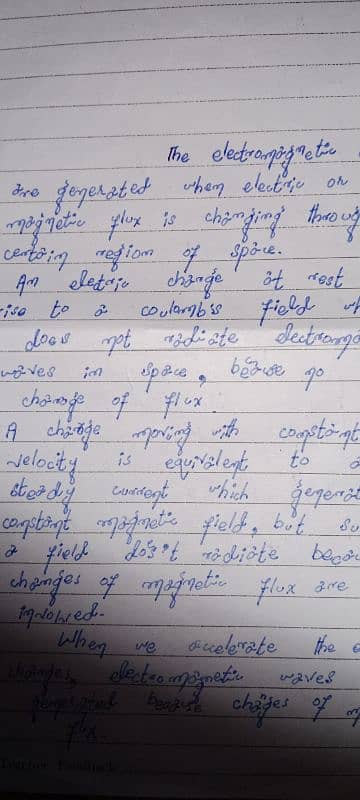 The electromagnetic
are generated when electric or
magnetic flux is changing throug
certain region of space.
An eletric charge at rest
rise to a coulomb's field w
does not radiate electromag
waves in space, because no
change of flux.
A charge moving with constant
velocity is equivalent to a
steady current which generat
constant magnetic field, but su
a field does't radiate becau
changes of magnetic flux are
involved.
When we accelerate the e
charges, electromagnetic waves
generated because chages of m
flux.